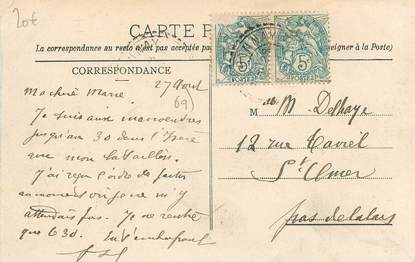 20€
CARTE P
La correspondance au recto n'est pas acceptée pa
(Se renseigner à la Poste)
CORRESPONDANCE
27 Aout
(09)
Ma chère Marie
Je suis aux manœuvres
jusqu'au 30 dans l'
avec mon bataillon.
J'ai reçu l'ordre de partir
au moment où je ne m'y
attendais pas. Je ne rentre
que le 30.
5c 5c
POSTES POSTES
M M. Delhaye
12 rue Taviel
St Omer
Pas de Calais